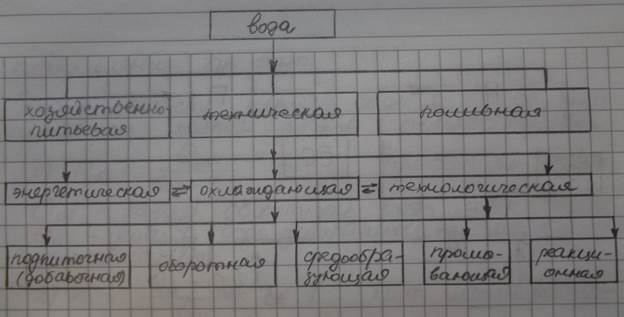 вода
хозяйственно-
питьевая
техническая
поливная
энергетическая = охлаждающая = технологическая
подпиточная
(добавочная)
оборотная
средообра-
зующая
промы-
вающая
реакци-
онная